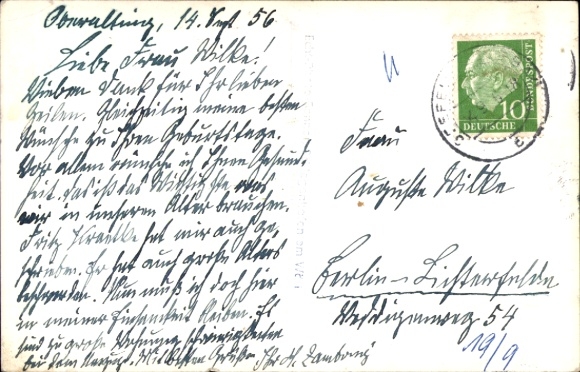 Oberaltting, 14. Sept 56
Liebe Frau Wilke!
Vielen Dank für Ihr lieben
Zeilen. Gleichzeitig meine besten
Wünsche zu Ihren Geburtstage.
Vor allem wünsche ich Ihnen Gesund-
heit, das ist das Wichtigste was
wir in unseren Alter brauchen.
Fritz Kraetke hat mir auch ge-
schrieben. Er hat auch große Alters
beschwerden. Nun muß ich doch hier
in meiner Einsamkeit bleiben. Es
sind zu große Wohnung schwierigkeiten
bei dem Umzug. Mit besten Grüßen Ihr H.
DEUTSCHE BUNDESPOST
10
Frau
Auguste Wilke
Berlin-Lichterfelde
Weddigenweg 54
19/9